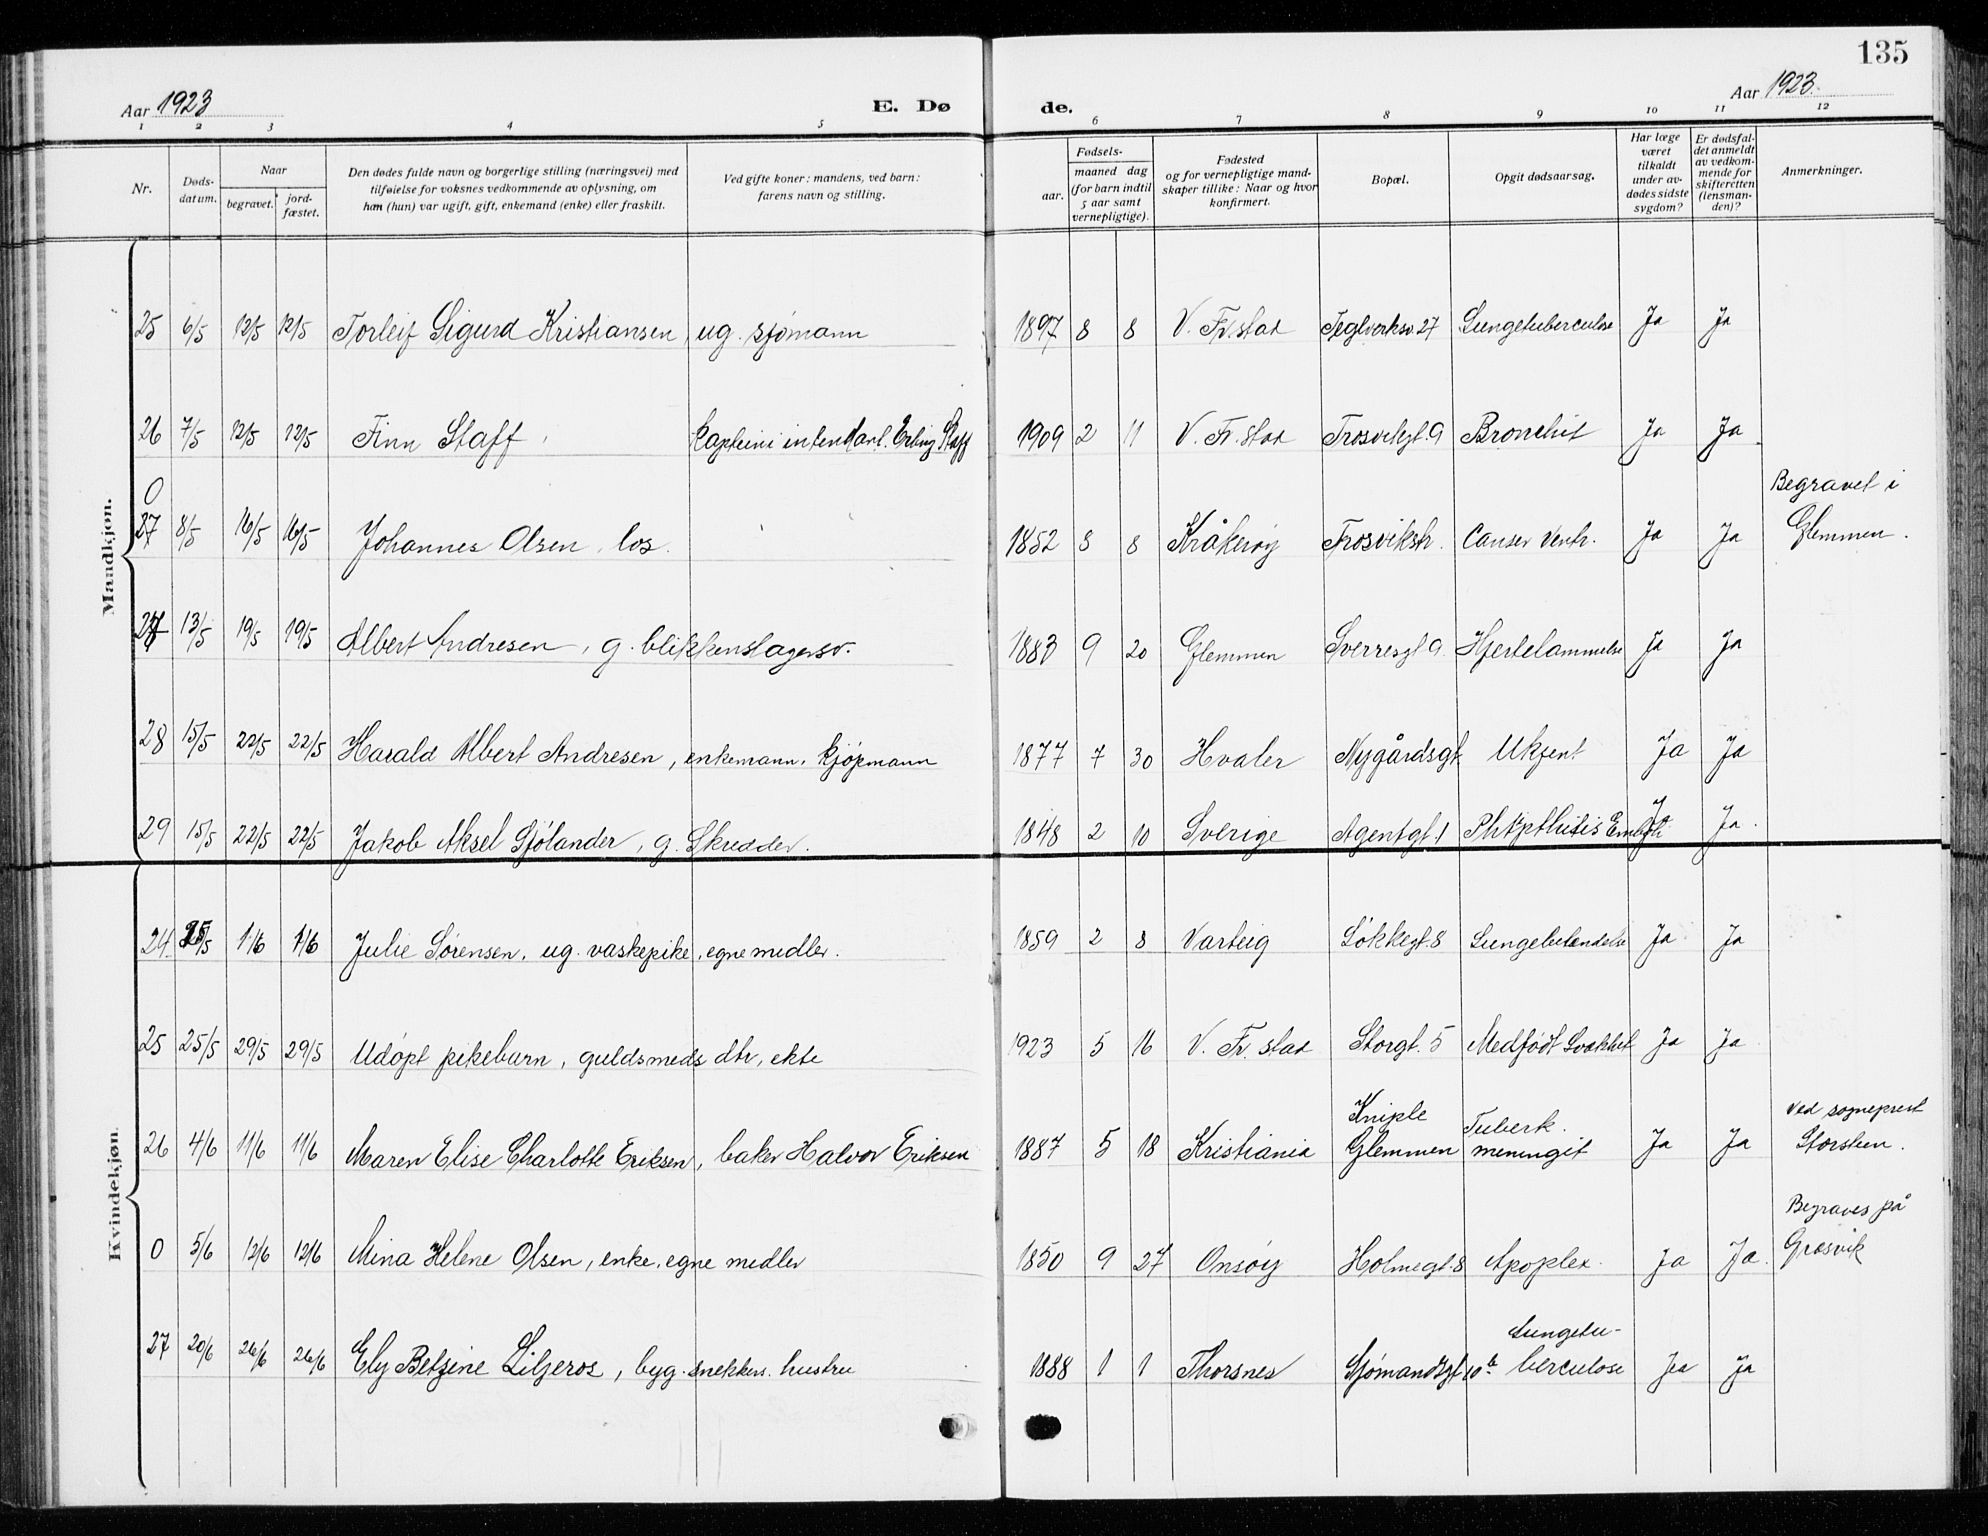 135
Aar 1923 E. Dø de. Aar 1923.
1 2 3 4 5 6 7 8 9 10 11 12
Nr. Døds-datum. Naar begravet. jord-fæstet. Den dødes fulde navn og borgerlige stilling (næringsvei) med tilføielse for voksnes vedkommende av oplysning, om han (hun) var ugift, gift, enkemand (enke) eller fraskilt. Ved gifte koner: mandens, ved barn: farens navn og stilling. Fødsels- aar. maaned dag (for barn indtil 5 aar samt vernepligtige). Fødested og for vernepligtige mand-skaper tillike: Naar og hvor konfirmert. Bopæl. Opgit dødsaarsag. Har læge været tilkaldt under av-dødes sidste sygdom? Er dødsfal-det anmeldt av vedkom-mende for skifteretten (lensman-den)? Anmerkninger.
Mandkjøn.
25 6/5 12/5 12/5 Torleif Sigurd Kristiansen, ug. sjømann 1897 8 8 V. Fr.stad Teglverksv 27 Lungetuberculose Ja Ja
26 7/5 12/5 12/5 Finn Staff, kaptein i intendant. Erling Staff 1909 2 11 V. Fr. stad Trosvikgt. 9 Bronchit Ja Ja
0
27 8/5 16/5 16/5 Johannes Olsen, los. 1852 8 8 Kråkerøy Trosvikstr. Canser Ventr. Ja Ja Begravet i Glemmen.
27 13/5 19/5 19/5 Albert Andresen, g. blikkenslagersv. 1883 9 20 Glemmen Sverresgt 9. Hjertelammelse Ja Ja
28 15/5 22/5 22/5 Harald Albert Andresen, enkemann, kjøpmann 1877 7 30 Hvaler Nygårdsgt. Ukjent Ja Ja
29 15/5 22/5 22/5 Jakob Aksel Sjølander, g. Skredder. 1848 2 10 Sverige Agentgt. 1 Emboli Ja Ja.
Kvindekjøn.
24 25/5 1/6 1/6 Julie Sørensen, ug. vaskepike, egne midler. 1859 2 8 Varteig Løkkegt. 8 Lungebetendelse Ja Ja
25 25/5 29/5 29/5 Udøpt pikebarn, guldsmeds dtr, ekte 1923 5 16 V. Fr. stad Storgt. 5 Medfødt Svakhet Ja Ja
26 4/6 11/6 11/6 Maren Elise Charlotte Eriksen, baker Halvor Eriksen 1887 5 18 Kristiania Kniple Glemmen Tuberk. meningit Ja Ja Ved sogneprest Storsteen.
0 5/6 12/6 12/6 Mina Helene Olsen, enke, egne midler 1850 9 27 Onsøy Holmegt. 8 Apoplex. Ja Ja. Begraves på Græsvik
27 20/6 26/6 26/6 Ely Betzine Liljeros, byg. snekkers hustru 1888 1 1 Thorsnes Sjømandsgt 10 b Lungetu-berculose Ja Ja